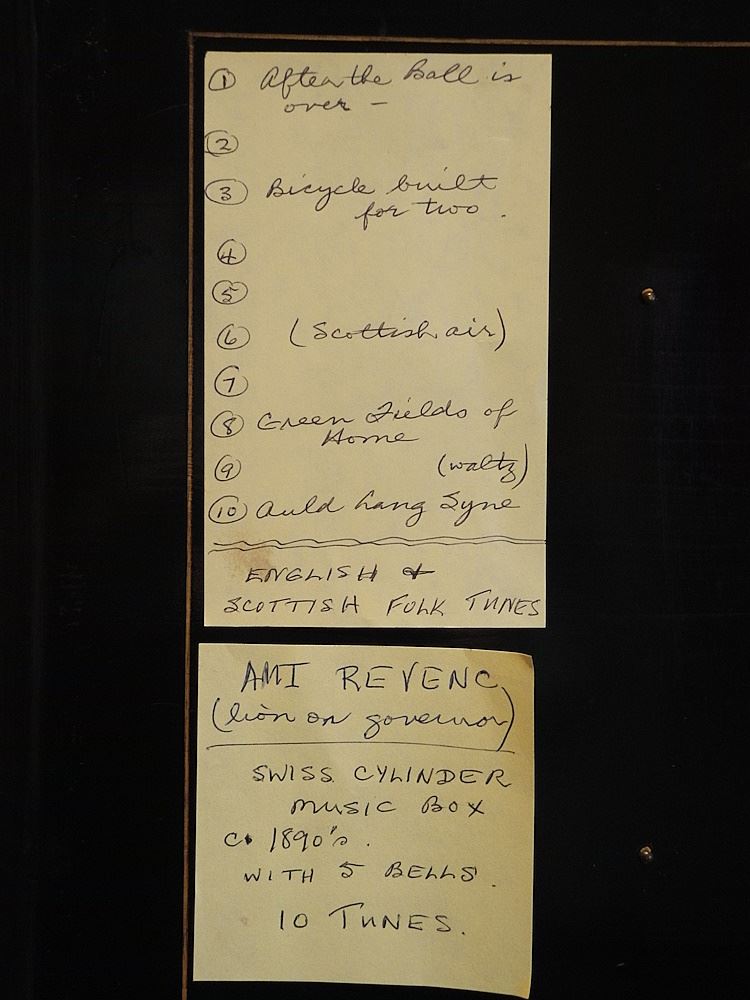 ① After the Ball is
over -
②
③ Bicycle built
for two.
④
⑤
⑥ (Scottish air)
⑦
⑧ Green Fields of
Home
⑨ (waltz)
⑩ Auld Lang Syne
ENGLISH &
SCOTTISH FOLK TUNES
AMI REVENC
(lion on governor)
SWISS CYLINDER
MUSIC BOX
C. 1890's.
WITH 5 BELLS.
10 TUNES.